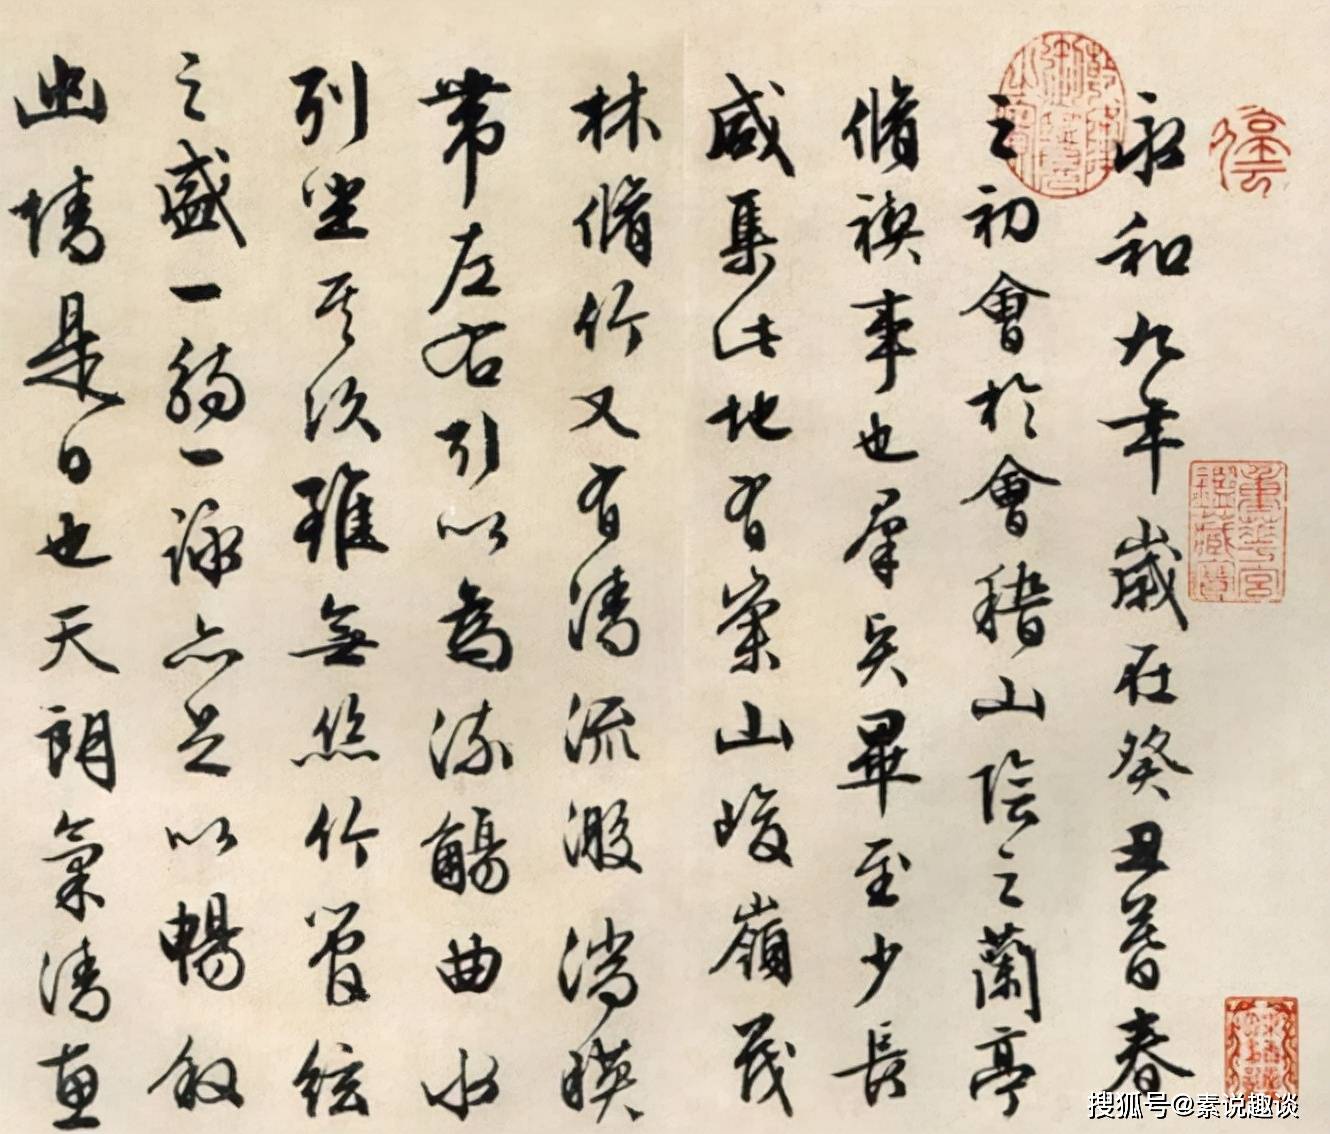 永和九年歲在癸丑暮春
之初會於會稽山陰之蘭亭
脩禊事也羣賢畢至少長
咸集此地有崇山峻嶺茂
林脩竹又有清流激湍暎
帶左右引以為流觴曲水
列坐其次雖無絲竹管絃
之盛一觴一詠亦足以暢敘
幽情是日也天朗氣清惠
重華宮鑑藏寶
搜狐号@素说趣谈